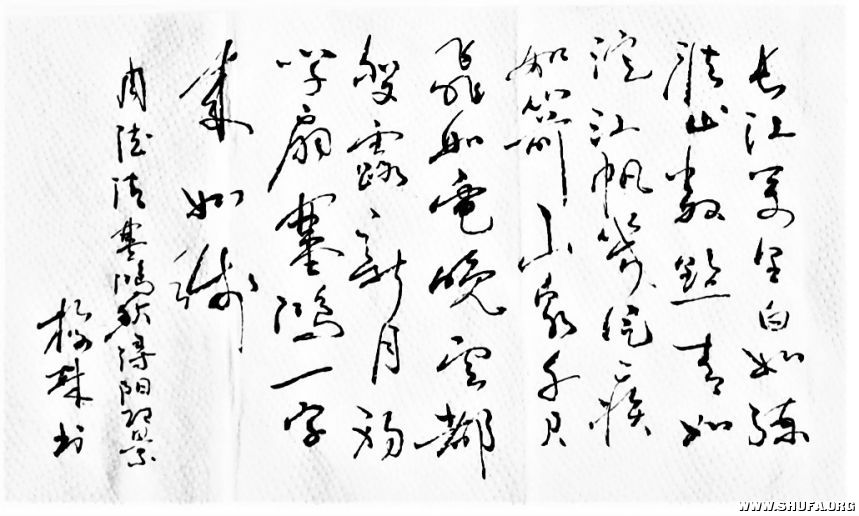 长江万里白如练
淮山数点青如
淀江帆几片疾
如箭山泉千尺
飞如电晚云都
变露新月初
学扇塞鸿一字
来如线
周德清塞鸿秋浔阳即景
书
WWW.SHUFA.ORG